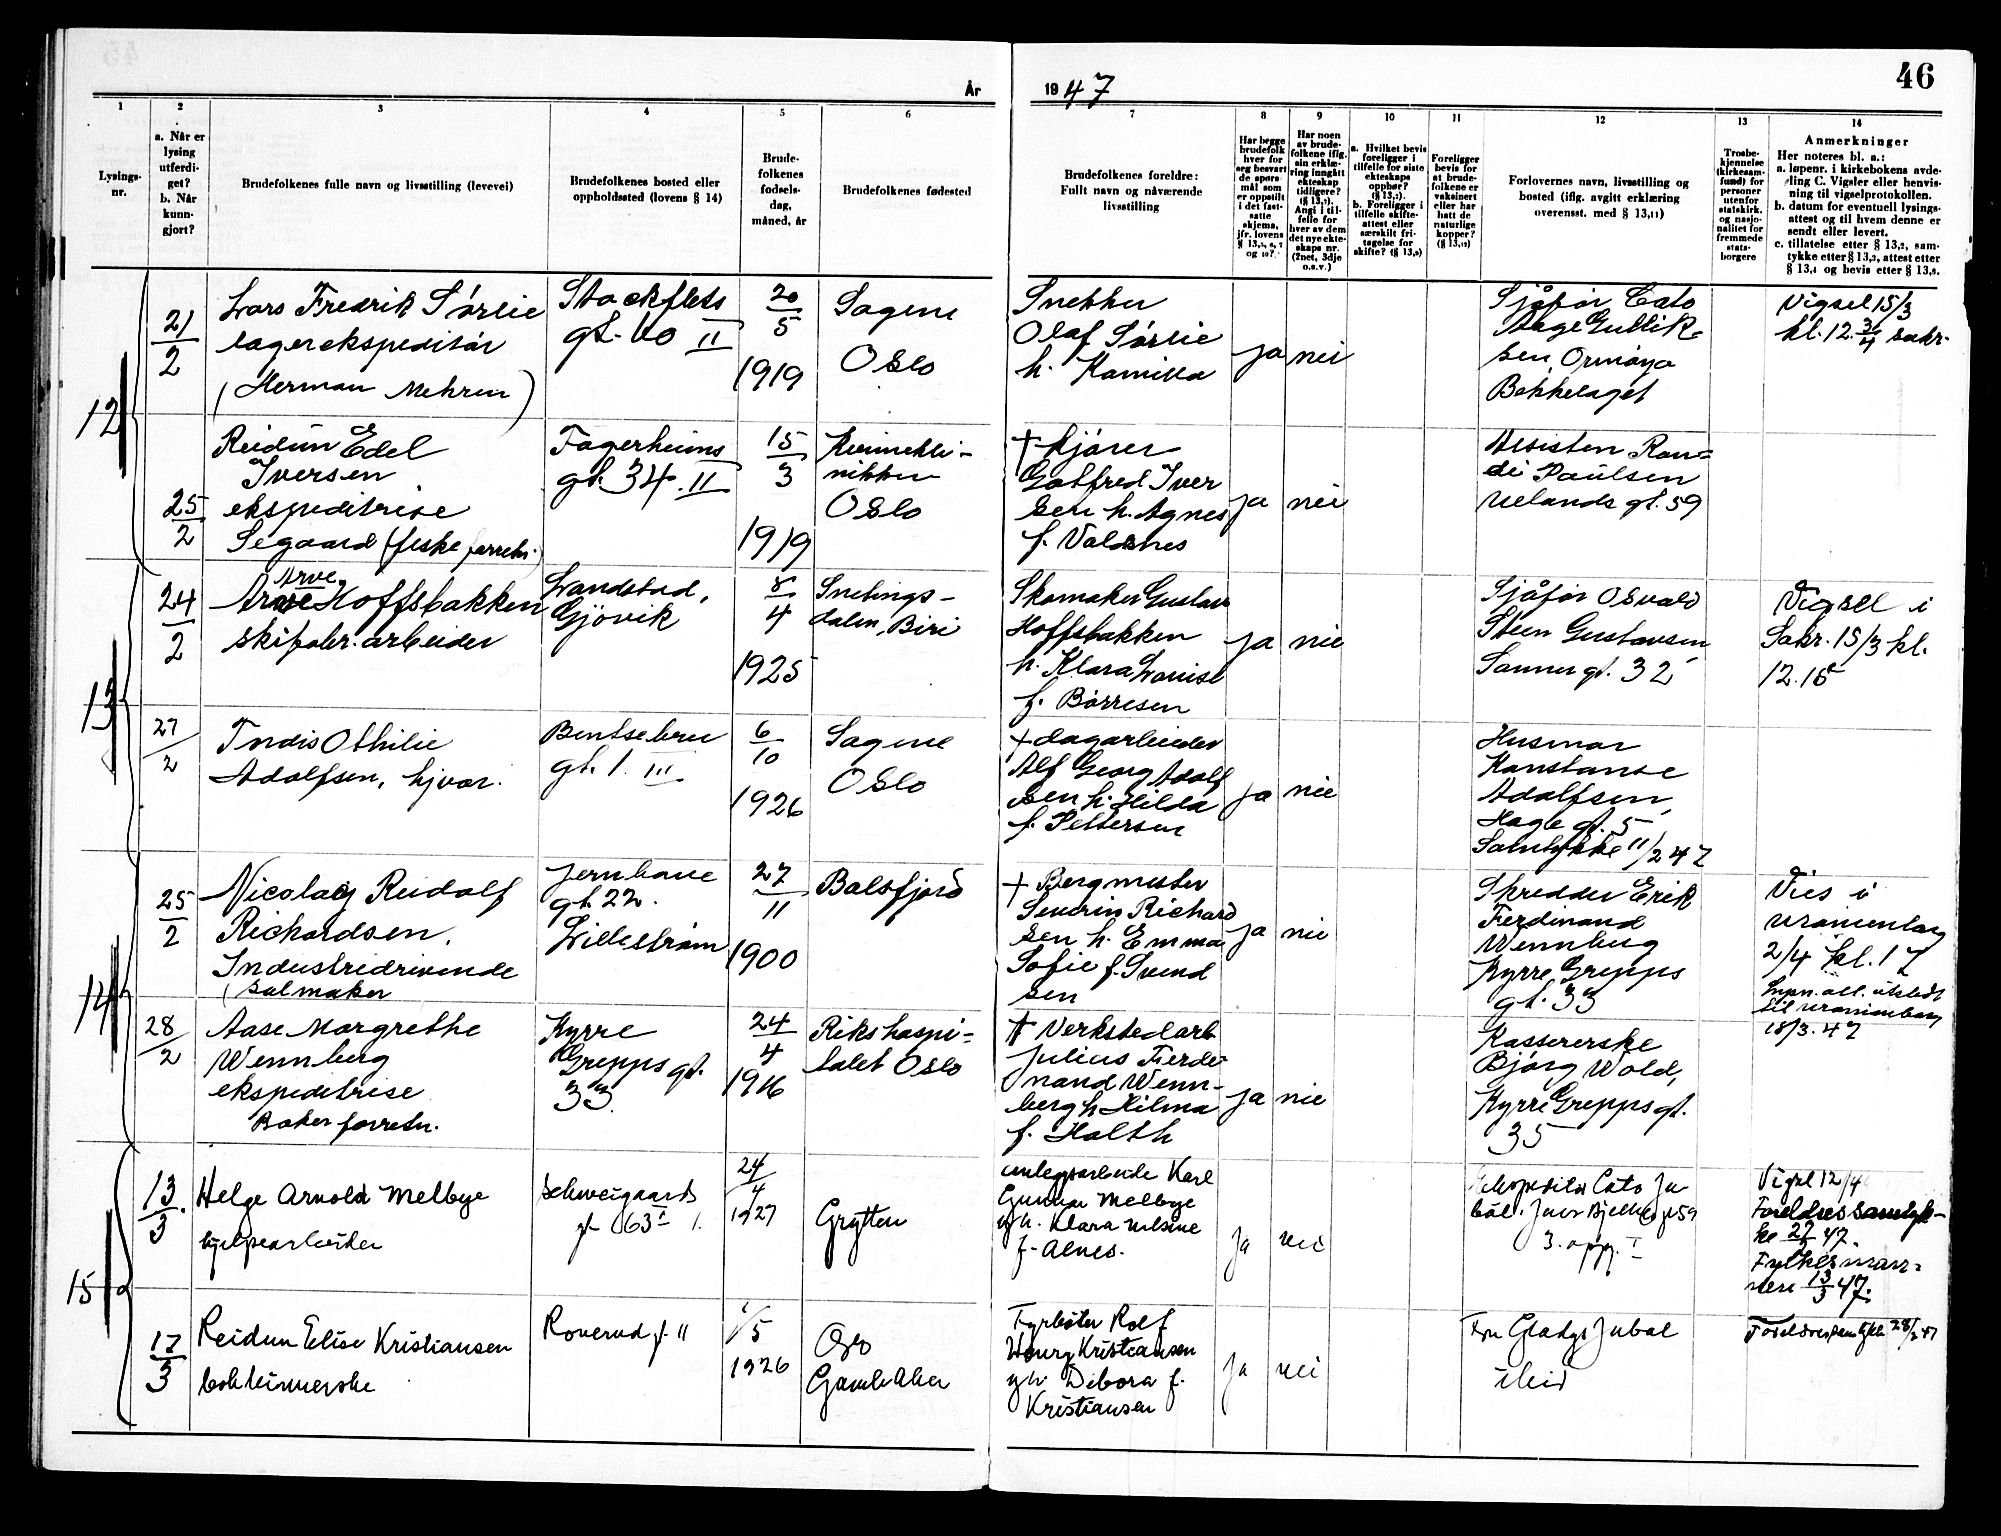 46
År
1947
1
2
3
4
5
6
7
8
9
10
11
12
13
14
Lysings-
nr.
a. Når er
lysing
utferdi-
get?
b. Når
kunn-
gjort?
Brudefolkenes fulle navn og livsstilling (levevei)
Brudefolkenes bosted eller
oppholdssted (lovens § 14)
Brude-
folkenes
fødsels-
dag,
måned, år
Brudefolkenes fødested
Brudefolkenes foreldre:
Fullt navn og nåværende
livsstilling
Har begge
brudefolk
hver for
seg besvart
de spørs-
mål som
er oppstilt
i det fast-
satte
skjema,
jfr. lovens
og 10?
Har noen
av brude-
folkene iflg.
sin erklæ-
ring inngått
ekteskap
tidligere?
(§ 13,7).
Angi i til-
felle for
hver av dem
det nye ekte-
skaps nr.
(2net, 3dje
o.s.v.)
a. Hvilket bevis
foreligger i
tilfelle for siste
ekteskaps
opphør?
b. Foreligger i
tilfelle skifte-
attest eller
særskilt fri-
tagelse for
skifte? (§ 13,9)
Foreligger
bevis for
at brude-
folkene er
vaksinert
eller har
hatt de
naturlige
kopper?
(§ 13,12)
Forlovernes navn, livsstilling og
bosted (iflg. avgitt erklæring
overensst. med § 13,11)
Trosbe-
kjennelse
(kirkesam-
fund) for
personer
utenfor
statskirk.
og nasjo-
nalitet for
fremmede
stats-
borgere
Anmerkninger
Her noteres bl. a.:
a. løpenr. i kirkebokens avde-
ling C. Vigsler eller henvis-
ning til vigselprotokollen.
b. datum for eventuell lysings-
attest og til hvem denne er
sendt eller levert.
c. tillatelse etter § 13,2, sam-
tykke etter § 13,3, attest etter
§ 13,4 og bevis etter § 13,8.
12
21/2
Lars Fredrik Sørlie
lagerekspeditør
(Herman Mehren)
Stockflets
gt. 60 II
20/5
1919
Sagene
Oslo
Snekker
Olaf Sørlie
h. Kamilla
ja
nei
Sjåfør Cato
Aage Gullik-
sen, Ormøya
Bekkelaget
Vigsel 15/3
kl. 12 3/4 sakr.
25/2
Reidun Edel
Iversen
ekspeditrise
Segaard (fiske forretn.)
Fagerheims
gt. 34. II
15/3
1919
Kvinnekli-
nikken
Oslo
+ kjører
Gotfred Iver
sen h. Agnes
f. Valdsnes
ja
nei
Assisten Ran-
di Paulsen
Uelands gt. 59
13
24/2
Arve
Arne Hoffsbakken
skifabr. arbeider
Landstad,
Gjøvik
8/4
1925
Snertings-
dalen, Biri
Skomaker Gustav
Hoffsbakken
h. Klara Lovise
f. Børresen
ja
nei
Sjåfør Osvald
Steen Gustavsen
Sannergt. 32
Vigsel i
Sakr. 15/3 kl.
12.15
27/2
Tordis Othilie
Adolfsen, hjvær.
Bentsebru
gt. 1. III
6/10
1926
Sagene
Oslo
+ dagarbeider
Alf Georg Adolf
sen h. Hilda
f. Pettersen
ja
nei
Husmor
Konstanse
Adolfsen,
Hage gt. 5
Samtykke 11/2 47
14
25/2
Nicolay Rudolf
Richardsen,
Industridrivende
(salmaker
Jernbane
gt. 22.
Lillestrøm
27/11
1900
Balsfjord
+ Bergmester
Severin Richard
sen h. Emma
Sofie f. Svend
sen
ja
nei
Skredder Erik
Ferdinand
Wennberg
Kyrre Grepps
gt. 33
Vies i
Uranienborg
2/4 kl. 17
utstedt
til Uranienborg
18/3. 47
28/2
Aase Margrethe
Wennberg
ekspeditrise
Baker forretn.
Kyrre
Grepps gt.
33.
24/4
1916
Rikshospi-
talet Oslo
+ Verkstedarb
Julius Ferdi
nand Wenn-
berg h Hilma
f. Holth
ja
nei
Kassererske
Bjørg Wold,
Kyrre Grepps gt.
35
15
13/3.
Helge Arnold Melbye
hjelpearbeider
Schweigaards
gt 63 I
24/4
1927
Grytten
anlegsarbeide Karl
Gunnar Melbye
og h. Klara Nilsine
f. Alnes.
ja
nei
Ekspeditør Cato Ju
bal. Jens Bjelkes gt 59
3. opp. I
Vigsel 12/4
Foreldres samtyk-
ke 27/2 47.
Fylkesman-
nen 13/3 47.
17/3
Reidun Elise Kristiansen
bokbinnerske
Roverud gt. 11
1/5
1926
Oslo
Gamle Aker
Fyrbøter Rolf
Wourg Kristiansen
og h. Debora f.
Kristiansen
ja
nei
Fru Gladys Jubal
ibid
Foreldres samtykke 28/2 47